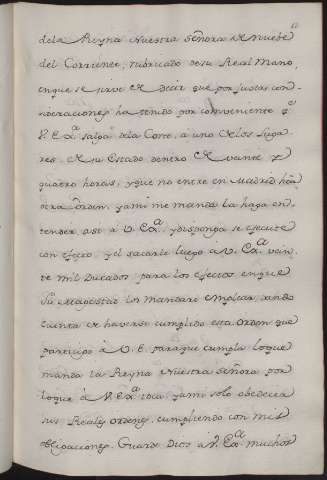 dela Reyna Nuestra Señora de nuebe
del Corriente, rubricado desu Real Mano,
enque se sirve de decir que por justas con-
sideraciones ha tenido por conveniente qe
V. Exa. salga dela Corte, a uno delos luga-
res de su Estado dentro de veinte y
quatro horas, y que no entre en Madrid hta
otra orden, y ami me manda la haga en-
tender assi a V. Exa. y disponga se execute
con efecto, y el sacarle luego â V. Exa. vein-
te mil Ducados para los efectos enque
Su Magestad los mandare emplear, dando
cuenta de haverse cumplido esta orden que
participo â V. E. paraque cumpla loque
manda la Reyna Nuestra Señora por
loque â V. Exa. toca, y ami solo obedecer
sus Reales ordenes, cumpliendo con mis
obligaciones. Guarde Dios a V. Exa. muchos